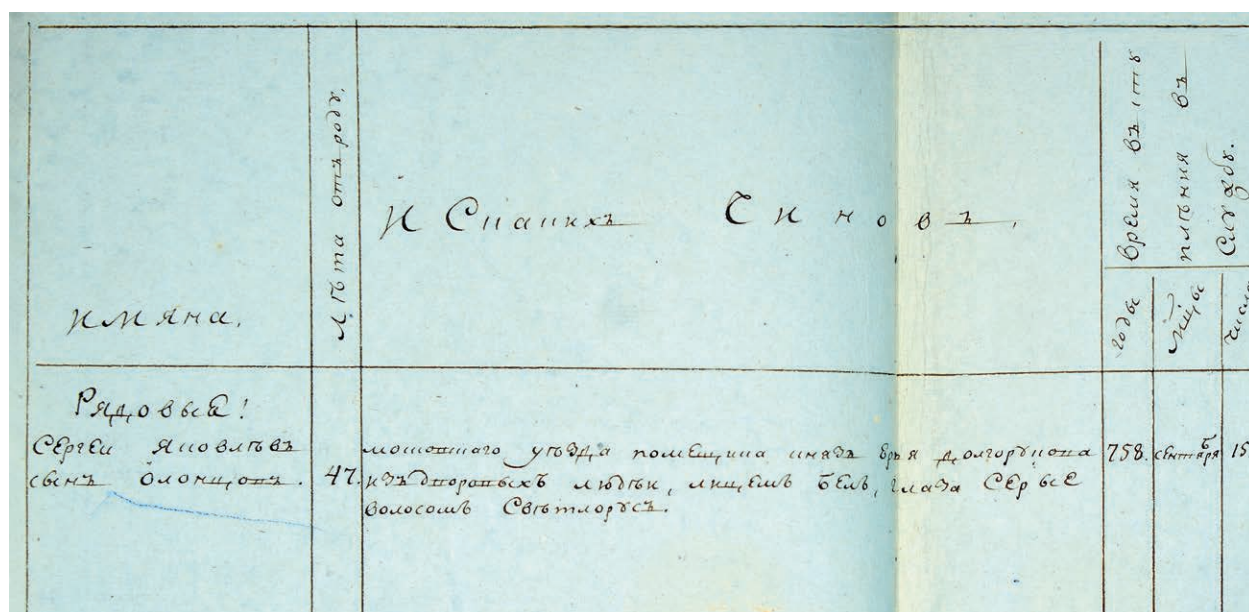 имяна.
Лѣта отъ роду.
ис какихъ Чиновъ.
время въ сту
пления въ
Службу.
годы
мцы
числа
Рядовые!
Сергеи Яковлевъ
сынъ Олонцовъ.
47.
московскаго уѣзда помещика князя долгорукова
изъ дворовыхъ людеи, лицемъ белъ, глаза серые
волосомъ свѣтлорусъ.
758.
сентября
15